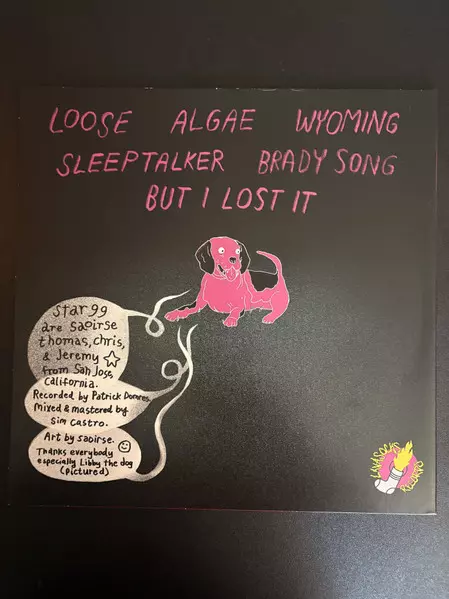 LOOSE ALGAE WYOMING
SLEEPTALKER BRADY SONG
BUT I LOST IT
star 99
are saoirse
thomas, chris,
& Jeremy
from San Jose,
California.
Recorded by Patrick
Mixed & mastered by
Sim Castro.
Art by saoirse.
Thanks everybody
especially Libby the dog
(pictured)
LAVASOCKS
RECORDS